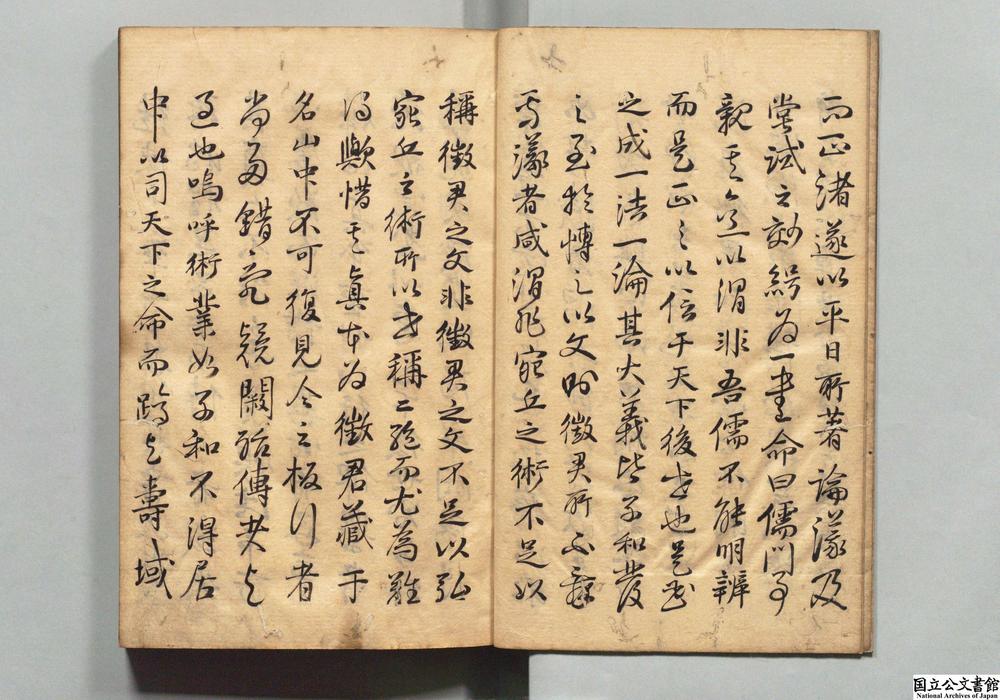 而正諸遂以平日所著論議及
嘗試之効緝為一書命曰儒門事
親其意以謂非吾儒不能明辨
而是正之以信于天下後世也是書
之成一法一論其大義皆子和發
之至於慱之以文則徵君所不辭
焉議者咸謂非宛丘之術不足以
稱徵君之文非徵君之文不足以弘
宛丘之術所以世稱二絶而尤為難
得歟惜其眞本為徵君藏于
名山中不可復見今之板行者
尚多錯亂疑闕殆傳者之
過也嗚呼術業如子和不得居
中以司天下之命而躋之壽域
国立公文書館
National Archives of Japan